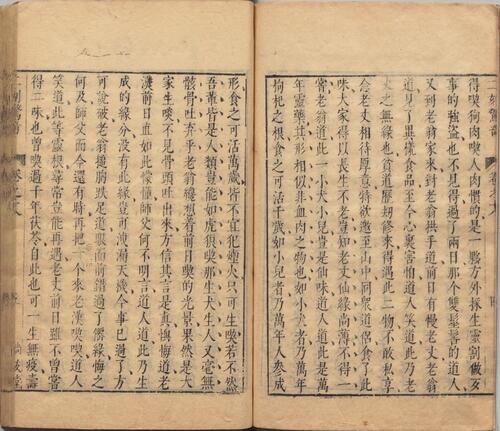 得喫狗肉喫人肉慣的是一夥方外採生靈割做歹
事的強盜也不見得過了兩日那個雙髻的道人
到老翁家來對老翁拱手道前日有慢老丈老翁
道見了異樣食品至今心裏害怕道人笑道此乃老
丈之無緣也貧道歷劫修來得遇此二物不敢私享
念老丈相待厚意特欲邀至山中同衆道侶食了此
味大家得以長生不老豈知老丈仙緣尚薄不得一
嘗老翁道此一小犬小兒豈是仙味道人道此是萬
年靈藥其形相似非血肉之物也如小犬者乃萬年
枸杞之根食之可活千歲如小兒者乃萬年人參成
形食之可活萬歲皆不宜犯煙火只可生喫若不然
吾輩皆是人類豈能如虎狼喫那生犬生人又毫無
骸骨吐弃乎老翁纔想着前日喫的光景果然是大
家生喫不見骨頭吐出來方信其言是眞懊悔道老
漢前日直如此懞懂師父何不明言道人道此乃生
成的緣分沒有此緣豈可洩漏天機今事已過了方
可說破老翁捶胸跌足道眼面前錯過了仙緣悔之
何及師父而今還有時再把一個來老漢喫喫道人
笑道此等靈根尋常豈能再遇老丈前日雖不曾嘗
得二味也曾喫過千年茯苓自此也可一生無疾壽
二刻驚奇 卷之十八
尚友堂